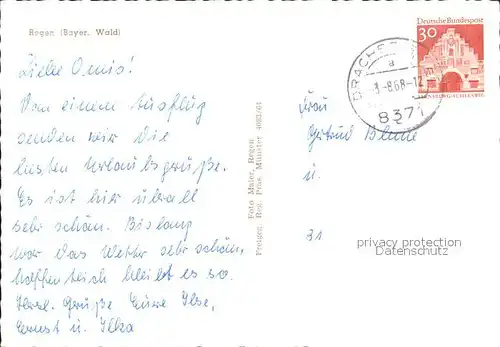 Regen (Bayer. Wald)
Liebe Omis!
Von einem Ausflug
senden wir die
besten Urlaubsgrüße.
Es ist hier überall
sehr schön. Bislang
war das Wetter sehr schön,
hoffentlich bleibt es so.
Herzl. Grüße Eure Ilse,
Ernst u. Ilka
Foto Maier, Regen
Freigeg. Reg. Präs. Münster
Deutsche Bundespost
30
8371
a
-8.68-12
Frau
Gertrud Blume
u.
31
privacy protection
Datenschutz